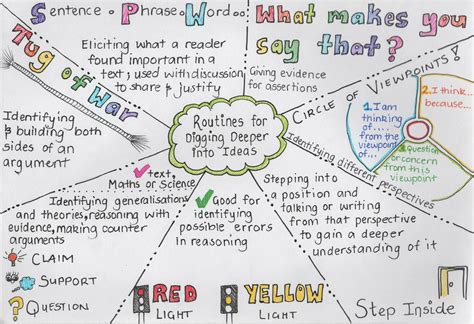 Sentence - Phrase - Word...
Eliciting what a reader
found important in a
text; used with discussion
to share & justify
What makes you
say that?
Giving evidence
for assertions
Circle of Viewpoints!
1. I am
thinking
of....
from the
viewpoint
of...
2. I think...
because...
3. Question
or concern
from this
viewpoint
Identifying different perspectives
Tug of War
Identifying
& building both
sides of an
argument
Routines for
Digging Deeper
into Ideas
text,
Maths or Science
Identifying generalisations
and theories, reasoning with
evidence, making counter
arguments
CLAIM
SUPPORT
QUESTION
Good for
identifying
possible errors
in reasoning
RED
LIGHT
YELLOW
LIGHT
Stepping into
a position and
talking or writing
from that perspective
to gain a deeper
understanding of it
Step Inside